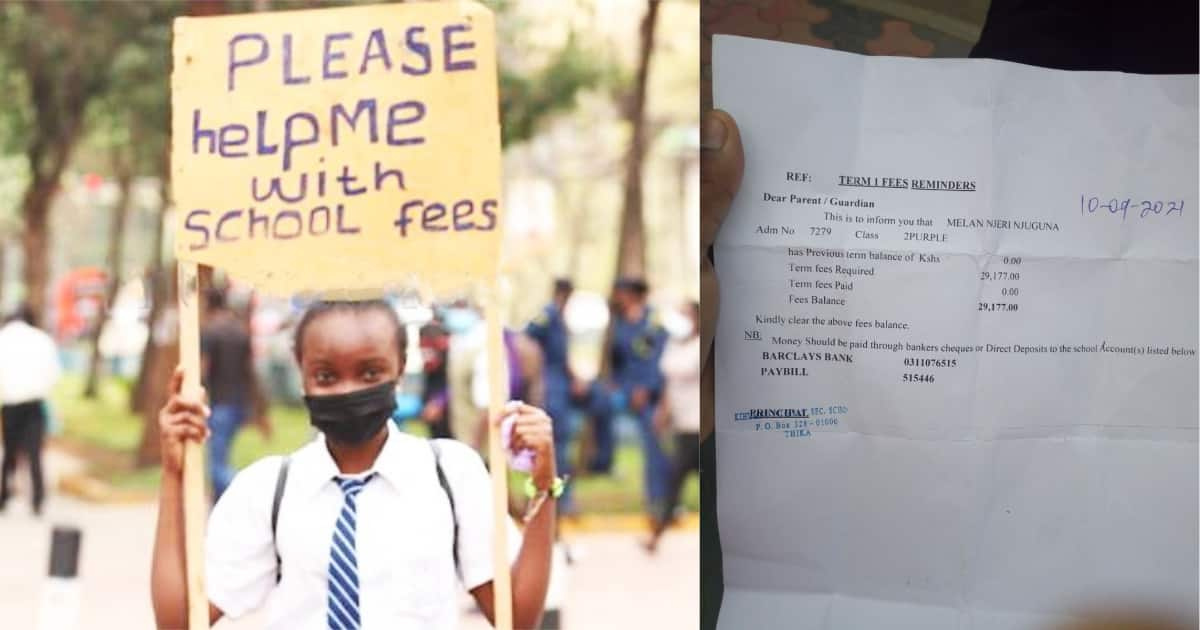 PLEASE
helpMe
with
SCHOOL fees
REF: TERM 1 FEES REMINDERS
10-09-2021
Dear Parent / Guardian
This is to inform you that MELAN NJERI NJUGUNA
Adm No 7279 Class 2PURPLE
has Previous term balance of Kshs 0.00
Term fees Required 29,177.00
Term fees Paid 0.00
Fees Balance 29,177.00
Kindly clear the above fees balance.
NB: Money Should be paid through bankers cheques or Direct Deposits to the school Account(s) listed below
BARCLAYS BANK 0311076515
PAYBILL 515446
PRINCIPAL SEC. SCHO
P. O. Box 328 - 01000
THIKA